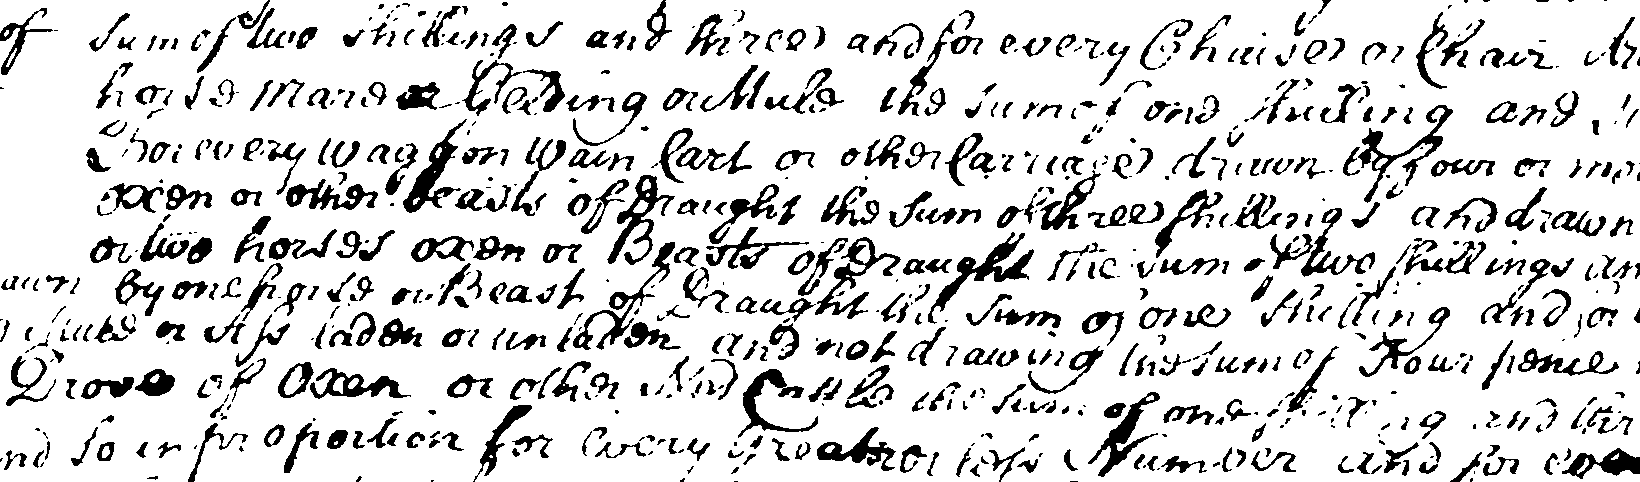 of sum of two shillings and three and for every Chaise or Chair dr
horse Mare or Gelding or Mule the sum of one shilling and
For every Waggon Wain Cart or other Carriage drawn by four or mor
oxen or other beasts of Draught the sum of three shillings and drawn
or two horses oxen or Beasts of Draught the sum of two shillings an
awn by one horse or Beast of Draught the sum of one shilling and for
Mule or Ass laden or unladen and not drawing the sum of Four pence
Drove of Oxen or other Neat Cattle the sum of one shilling and thr
nd so in proportion for every Greater or less Number and for eve